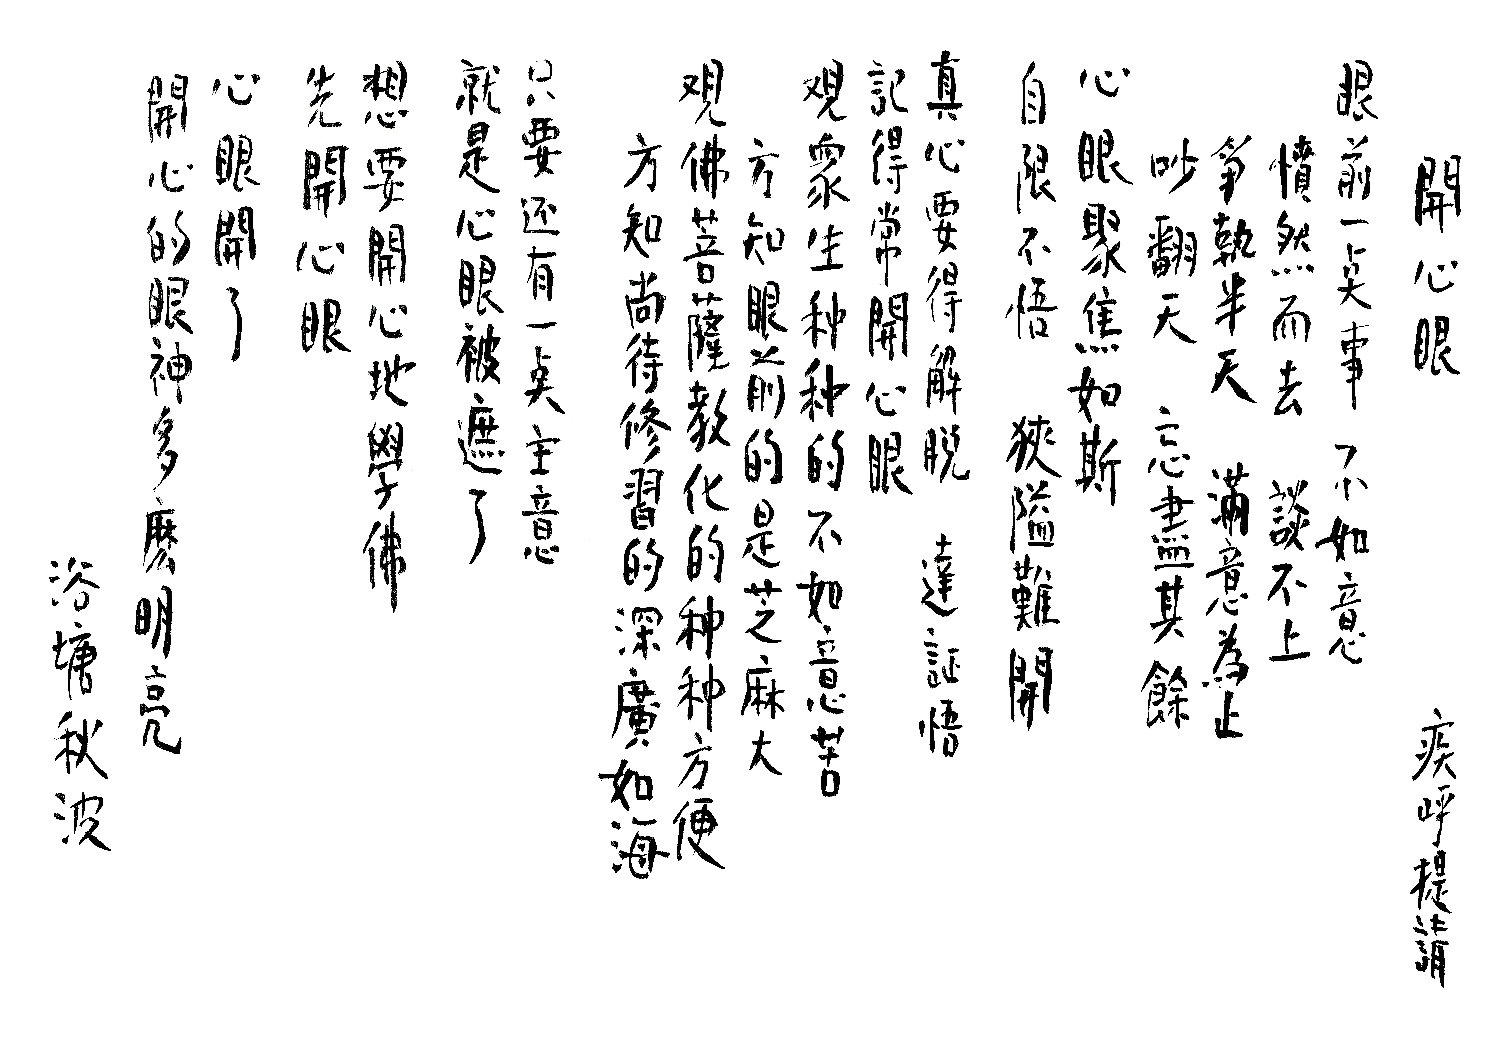 開心眼 疾呼提請
眼前一奌事 不如意
憤然而去 談不上
爭執半天 滿意為止
吵翻天 忘盡其餘
心眼聚焦如斯
自限不悟 狹隘難開
真心要得解脱 達証悟
記得常開心眼
观衆生种种的不如意苦
方知眼前的是芝麻大
观佛菩薩教化的种种方便
方知尚待修習的深廣如海
只要还有一奌主意
就是心眼被遮了
想要開心地學佛
先開心眼
心眼開了
開心的眼神多麽明亮
浴塘秋波